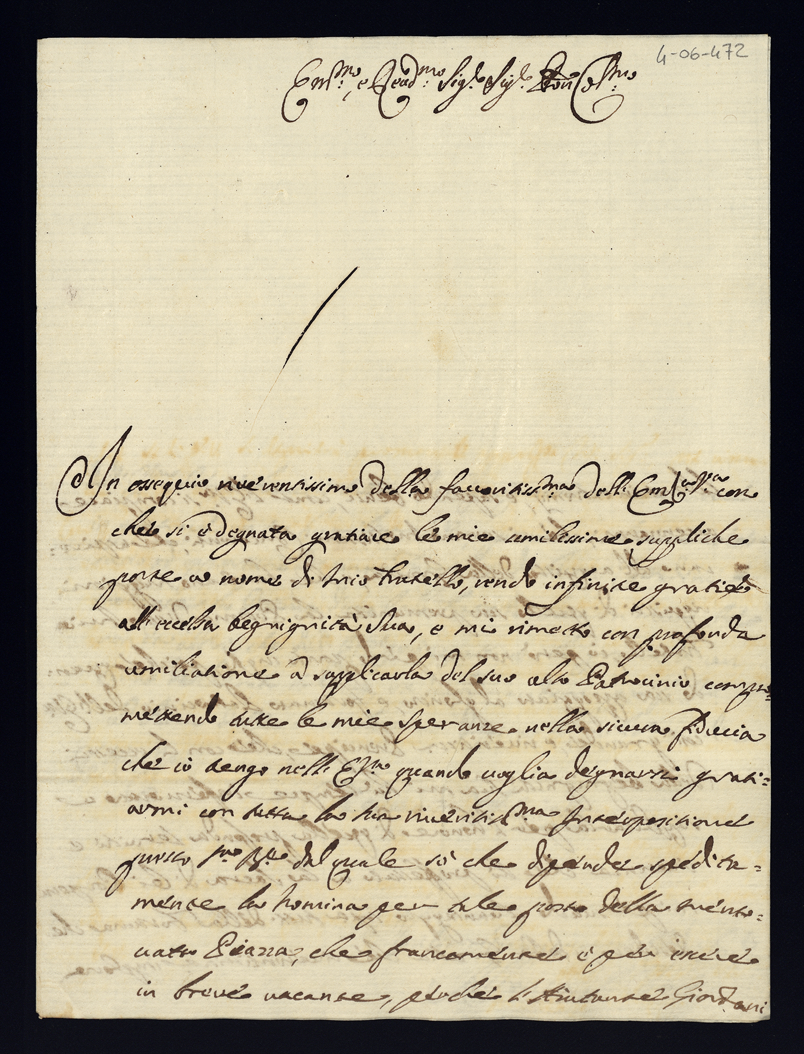 4-06-472
Em.mo e Reud.mo Sig.e Sig.e Pron Col.mo
In ossequio riverentissimo della favoritiss.ma dell Em.za V.ra con
che si è degnata gratiare le mie umilissime suppliche
porte a nome di mio fratello, rendo infinite gratie
all'eccelsa begnignità Sua, e mi rimetto con profonda
umiliatione à supplicarla del suo alto Patrocinio compro-
mettendo tutte le mie speranze nella sicura fiducia
che io tengo nell E.za quando voglia degnarsi grati=
armi con tutta la sua riveritiss.ma Interpositione
presso dal quale sò che dipende spedita=
mente la nomina per tale posto della
Piazza, che francamente è per essere
in breve vacante, perche l'Aiutante Giordani